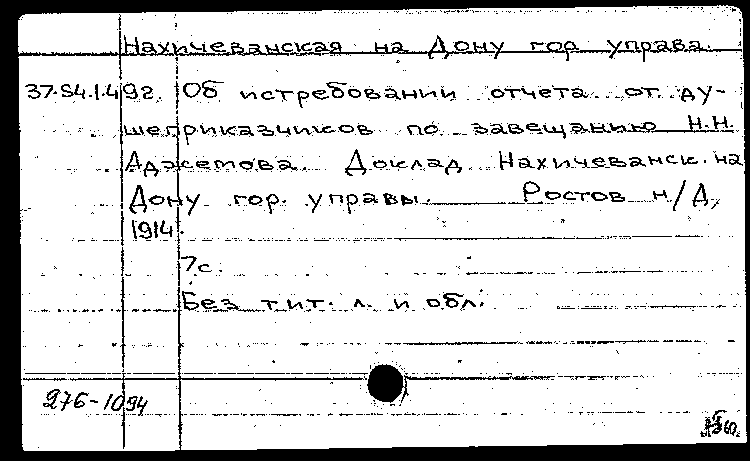 Нахичеванская на Дону гор управа.
37.54.1.492. Об истребовании отчета от ду-
шеприказчиков по завещанию Н.Н.
Аджемова. Доклад Нахичеванск. на
Дону гор. управы. Ростов н/Д,
1914.
7с.
Без тит. л. и обл.
276-1094